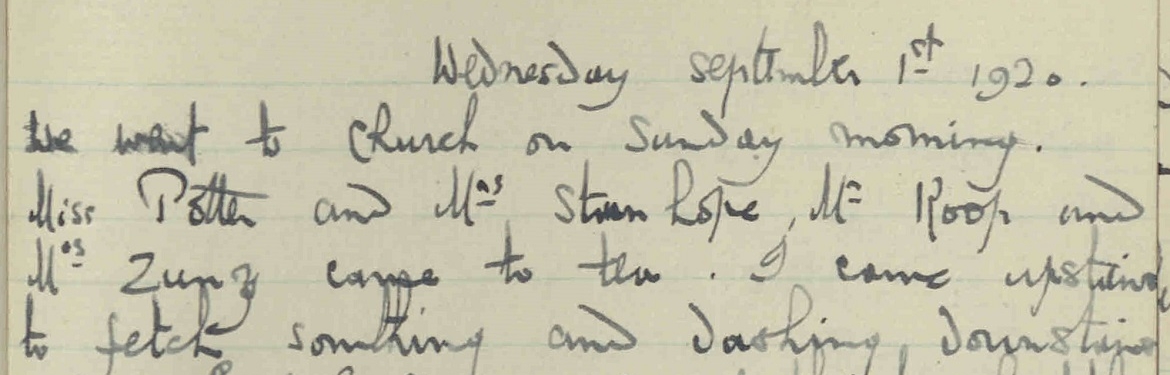 Wednesday september 1st 1920.
We went to church on Sunday morning.
Miss Potter and Mrs Stanhope, Mr Roop and
Mrs Zunz came to tea. I came upstairs
to fetch somthing and dashing downstairs